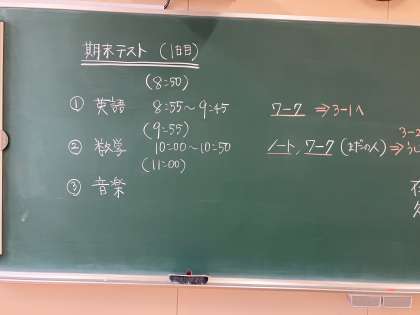 期末テスト (1日目)
(8:50)
① 英語 8:55～9:45 ワーク ⇒3-1へ
(9:55)
② 数学 10:00～10:50 ノート、ワーク (まだの人) ⇒
3-2
(11:00)
③ 音楽